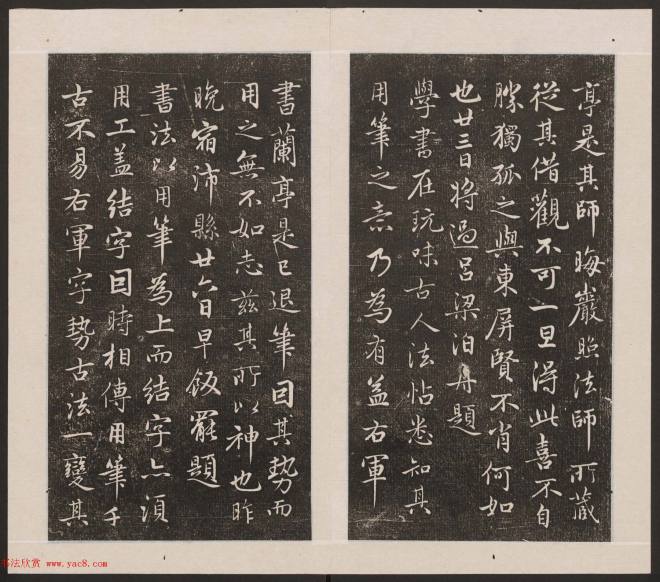 亭是其師晦巖照法師所藏
從其借觀不可一旦得此喜不自
勝獨孤之與東屏賢不肖何如
也廿三日將過呂梁泊舟題
學書在玩味古人法帖悉知其
用筆之意乃為有益右軍
書蘭亭是已退筆因其勢而
用之無不如志茲其所以神也昨
晚宿沛縣廿六日早飯罷題
書法以用筆為上而結字亦須
用工盖結字因時相傳用筆千
古不易右軍字勢古法一變其
书法欣赏 www.yac8.com